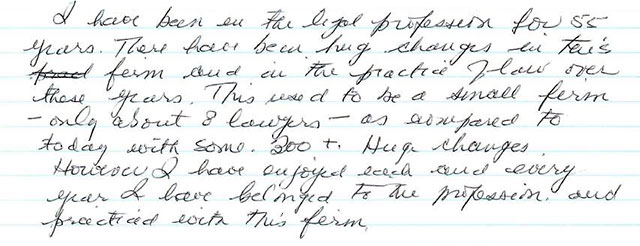 I have been in the legal profession for 55
years. There have been hug changes in this
firm and in the practice of law over
these years. This used to be a small firm
- only about 8 lawyers - as compared to
today with some. 200 +. Huge changes.
However I have enjoyed each and every
year I have belonged to the profession. and
practiced with this firm.